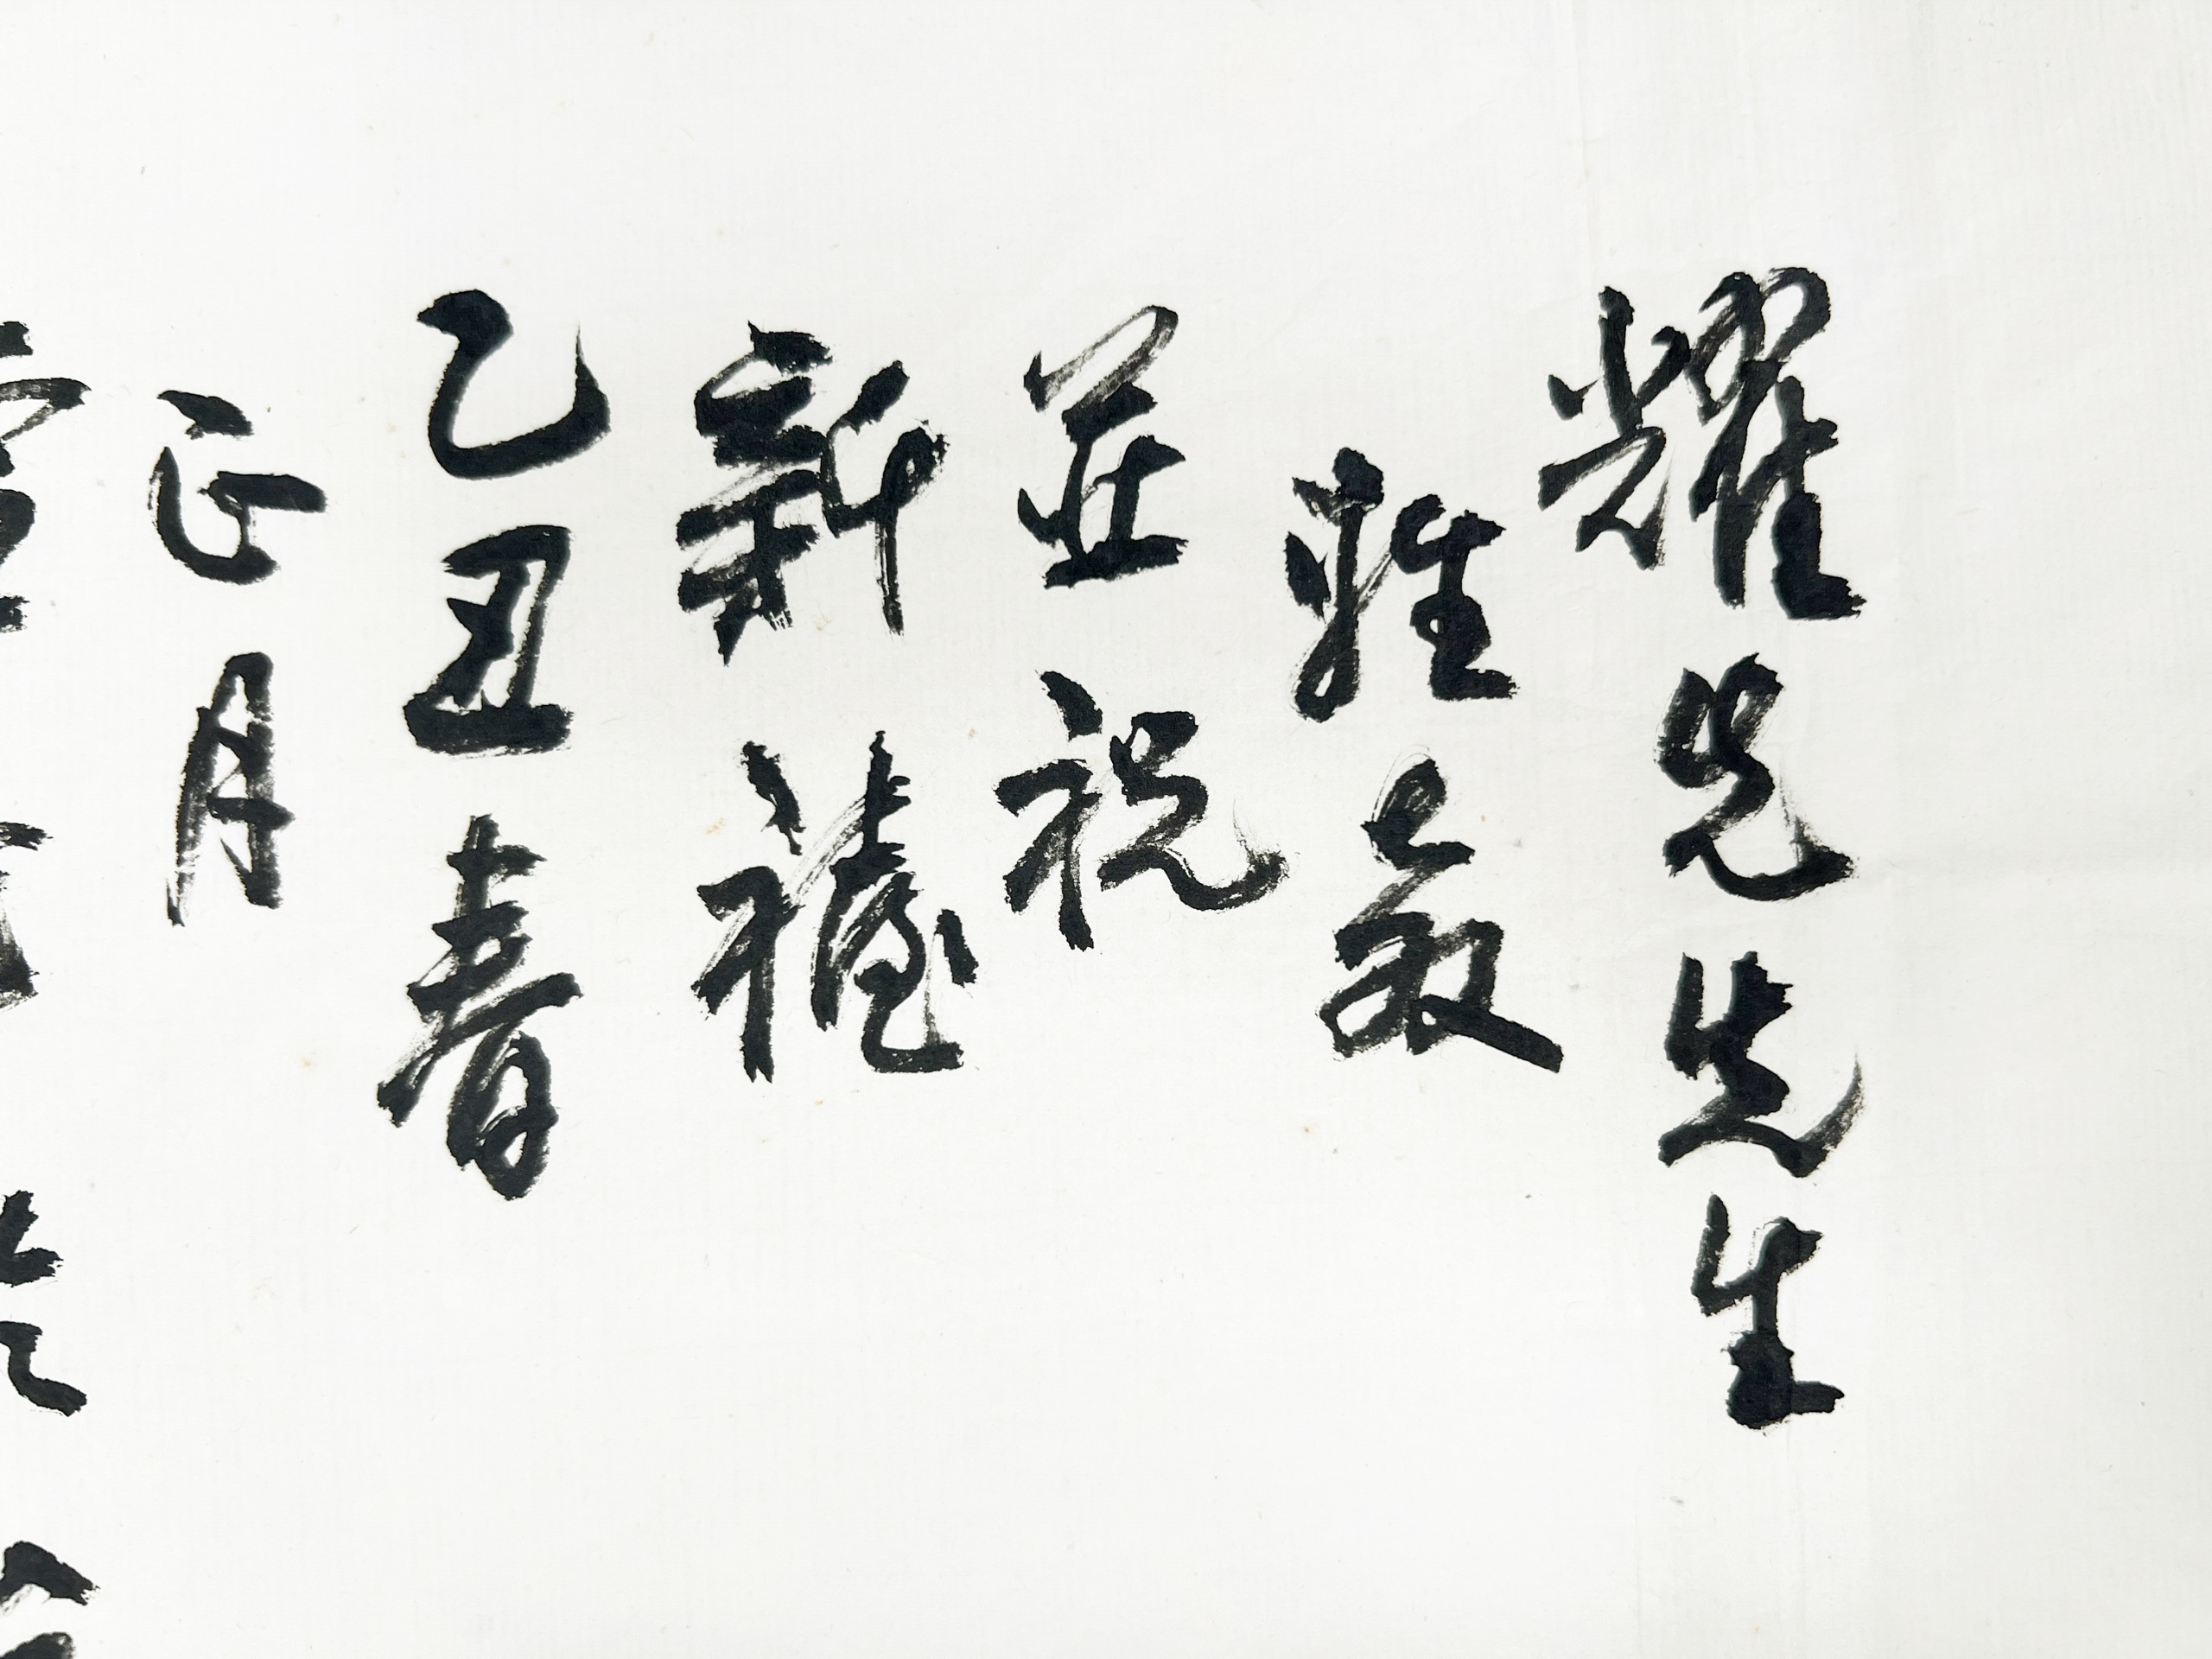 耀先生
雅教
並祝
新禧
乙丑春
正月